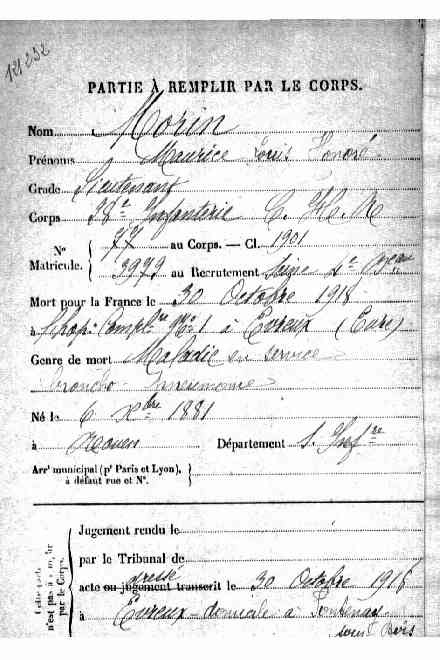 121 252
PARTIE À REMPLIR PAR LE CORPS.
Nom Morin
Prénoms Maurice Louis Honoré
Grade Lieutenant
Corps Infanterie C. H. R
N° 77 au Corps. — Cl. 1901
Matricule. 3979 au Recrutement Seine 4e Beau
Mort pour la France le 30 Octobre 1918
à hôp. Compl.re No 1 à Evreux (Eure)
Genre de mort Maladie en service
Broncho-Pneumonie
Né le 6 Xbre 1881
à Rouen Département S. Inf re
Arrt municipal (pr Paris et Lyon),
à défaut rue et N°.
Cette partie n'est pas à remplir par le Corps.
Jugement rendu le
par le Tribunal de
dressé
acte ou jugement transcrit le 30 Octobre 1918
à Evreux - domicile à Fontenay
sous Bois